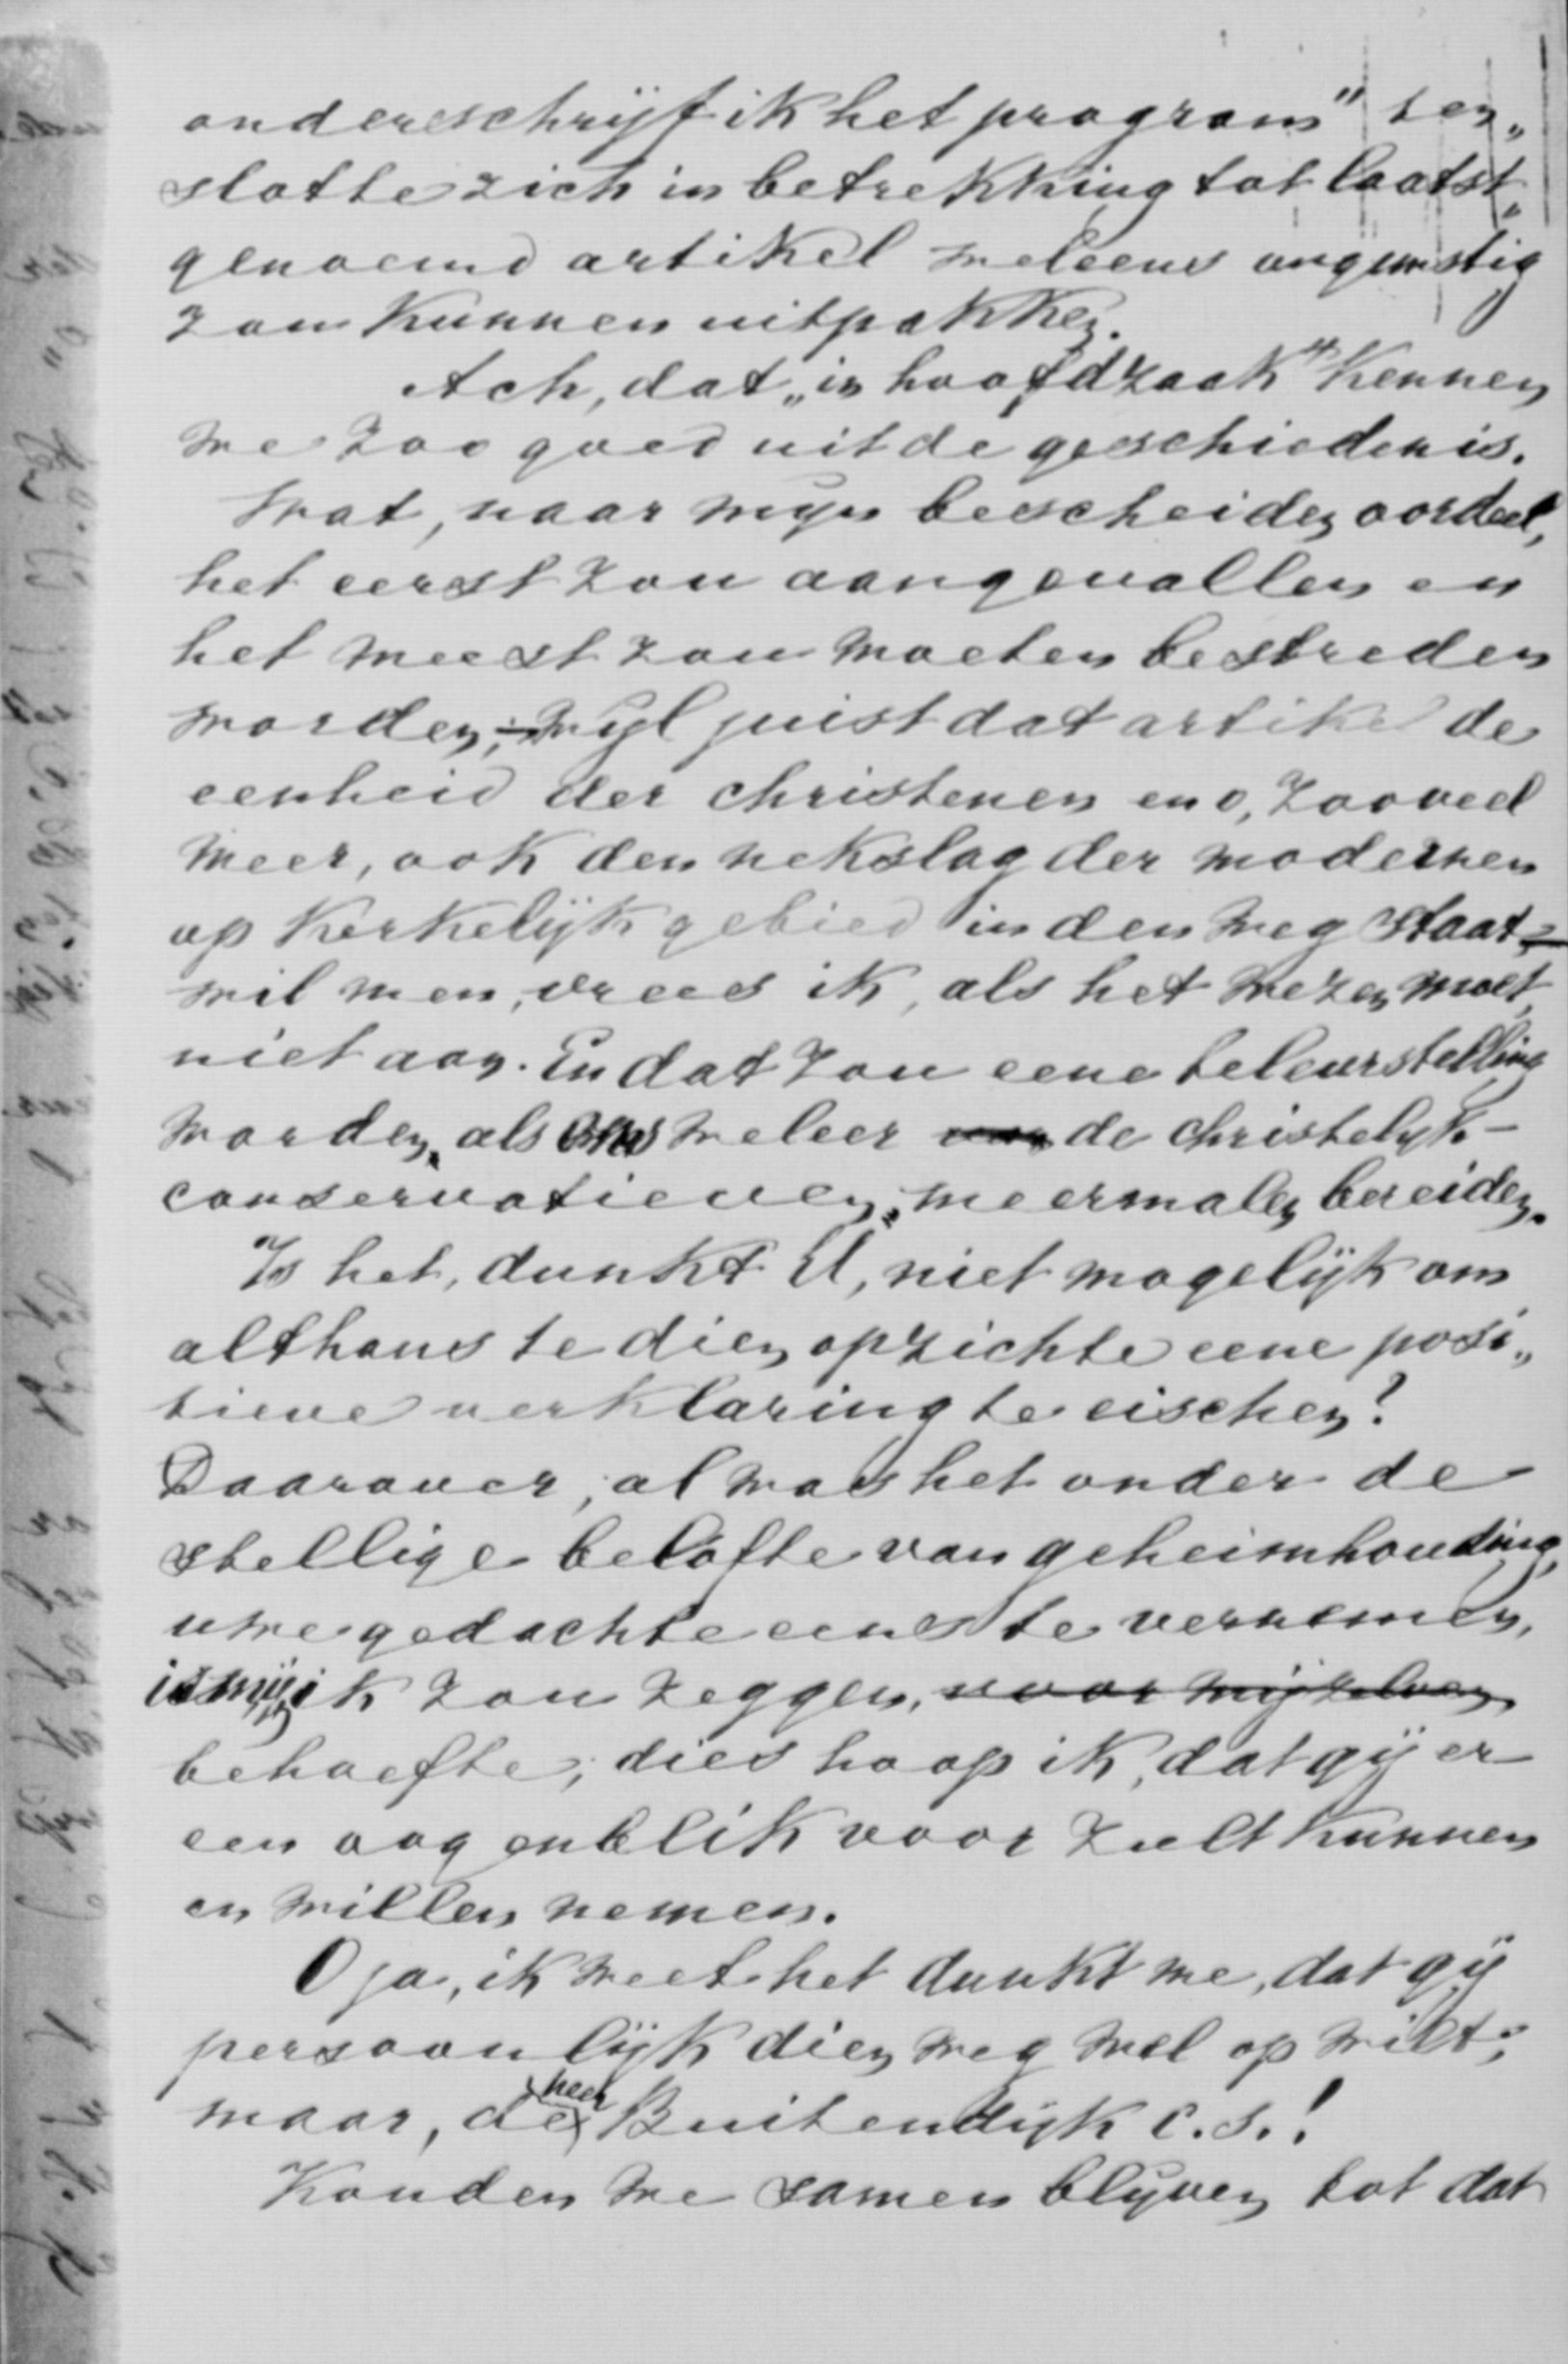 onderschrijf ik het program" ten„
slotte zich in betrekking tot laatst„
genoemd artikel weleens ongunstig
zou kunnen uitpakken.
Ach, dat „in hoofdzaak" kennen
we zoo goed uit de geschiedenis.
Wat, naar mijn bescheiden oordeel,
het eerst zou aangevallen en
het meest zou moeten bestreden
worden, - wijl juist dat artikel de
eenheid der christenen en o, zooveel
meer, ook den nekslag der modernen
op kerkelijk gebied in den weg staat -
wil men, vrees ik, als het wezen moet,
niet aan. En dat zou eene teleurstelling
worden, als ons weleer de christelijk-
conservatieven, meermalen bereiden.
Is het, dunkt U, niet mogelijk om
althans te dien opzichte eene posi„
tieve verklaring te eischen?
Daarover, al was het onder de
stellige belofte van geheimhouding,
uwe gedachte eens te vernemen,
is mij, ik zou zeggen, voor mijzelven
behoefte; dies hoop ik, dat gij er
een oogenblik voor zult kunnen
en willen nemen.
O ja, ik weet het dunkt me, dat gij
persoonlijk dien weg wel op wilt;
maar, de heer Buitendijk c.s.!
Konden we samen blijven tot dat